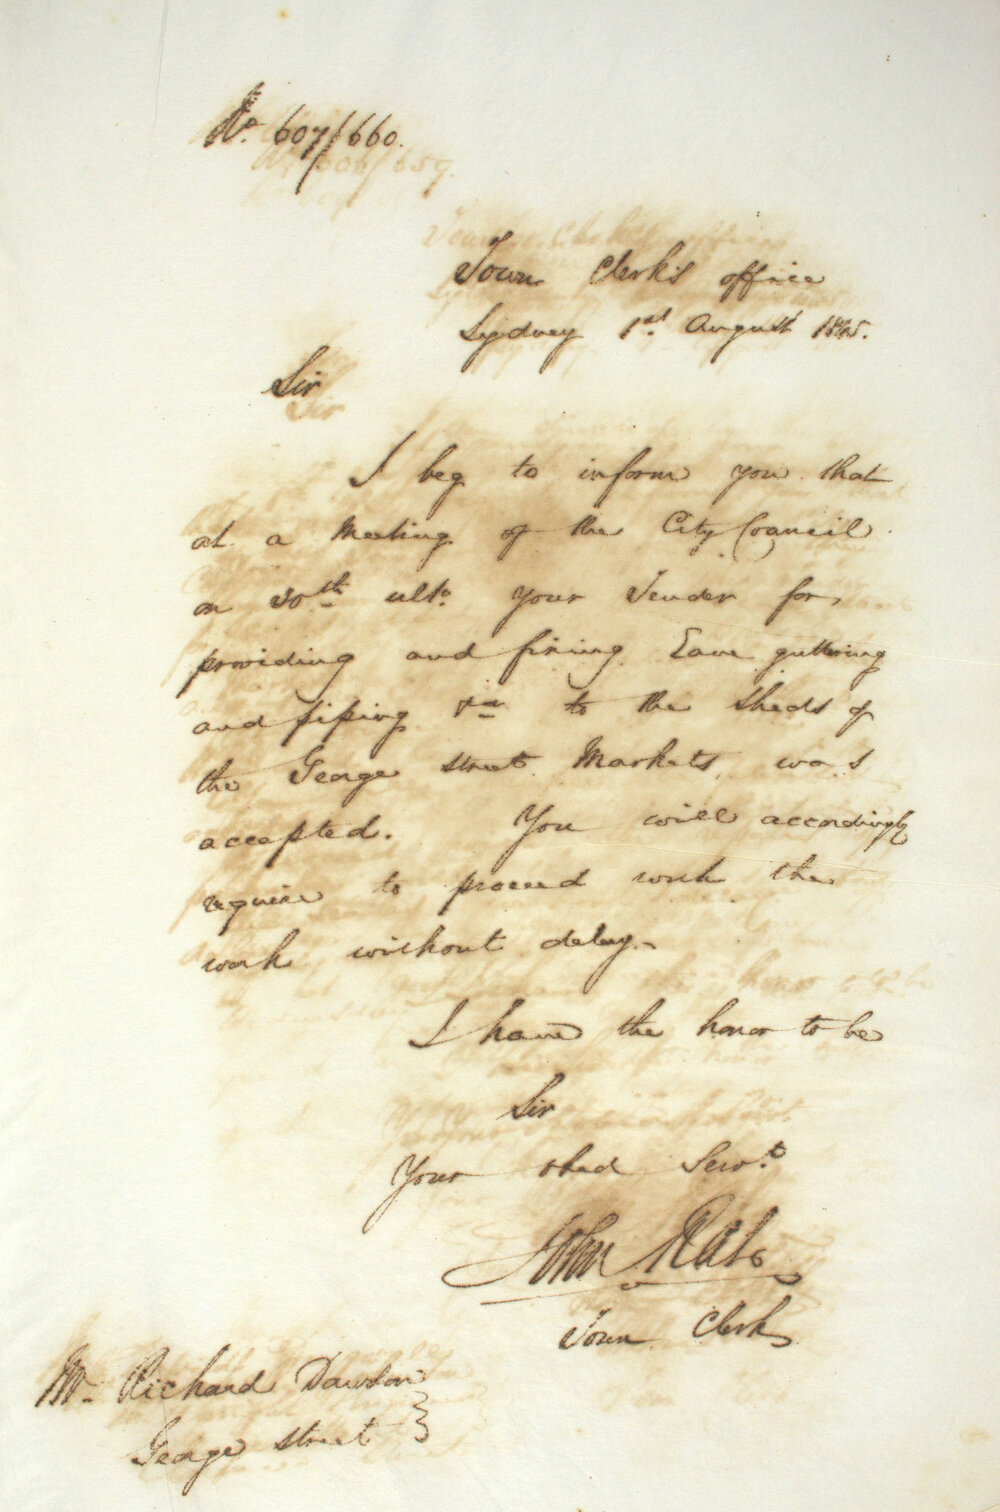 No. 607/660.
Town Clerk's office
Sydney 1st August 1845.
Sir
I beg to inform you that
at a Meeting of the City Council
on 30th ulto. your Tender for
providing and fixing Eave guttering
and piping &ca to the Sheds of
the George Street Markets, was
accepted. You will accordingly
require to proceed with the
work without delay.
I have the honor to be
Sir
Your obed Servt.
John Rae
Town Clerk
Mr. Richard Dawson
George Street